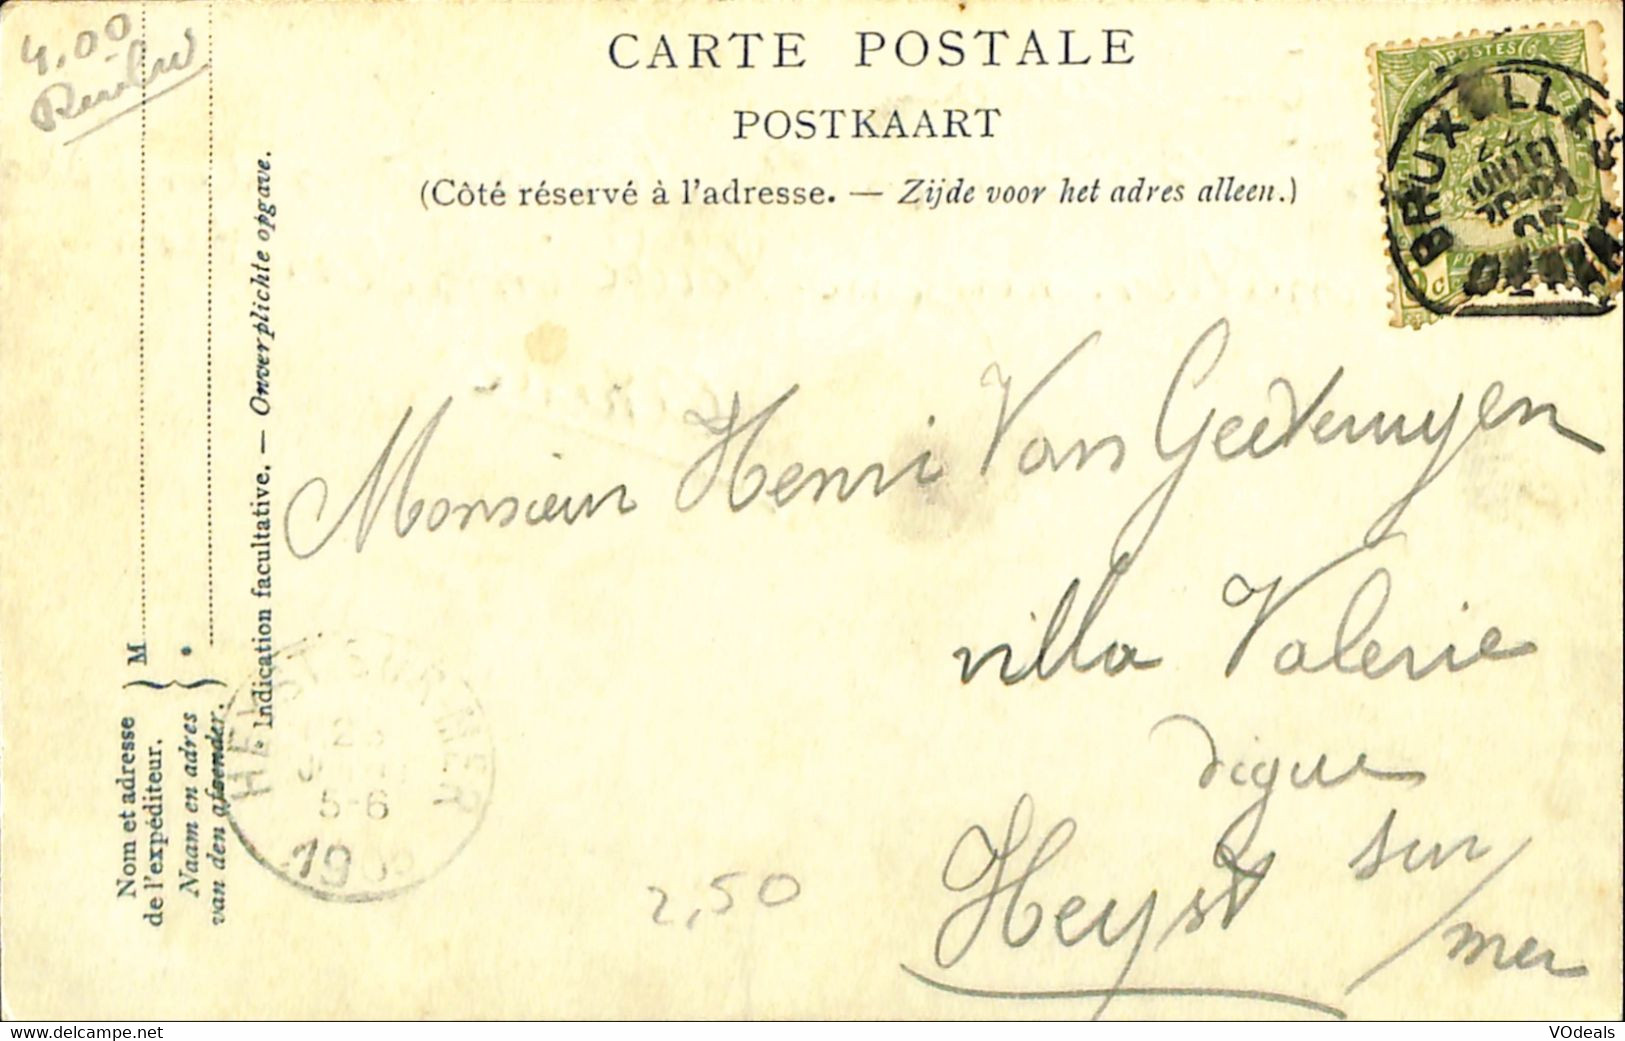 4.00
CARTE POSTALE
POSTKAART
(Côté réservé à l'adresse. — Zijde voor het adres alleen.)
POSTES
BRUXELLES
JUILLET
Monsieur Henri Van Geetruyen
villa Valerie
digue
Heyst sur
mer
2,50
Indication facultative. — Onverplichte opgave.
M
Nom et adresse
de l'expéditeur.
Naam en adres
van den afzender.
HEYST SUR MER
5-6
19
VOdeals
delcampe.net